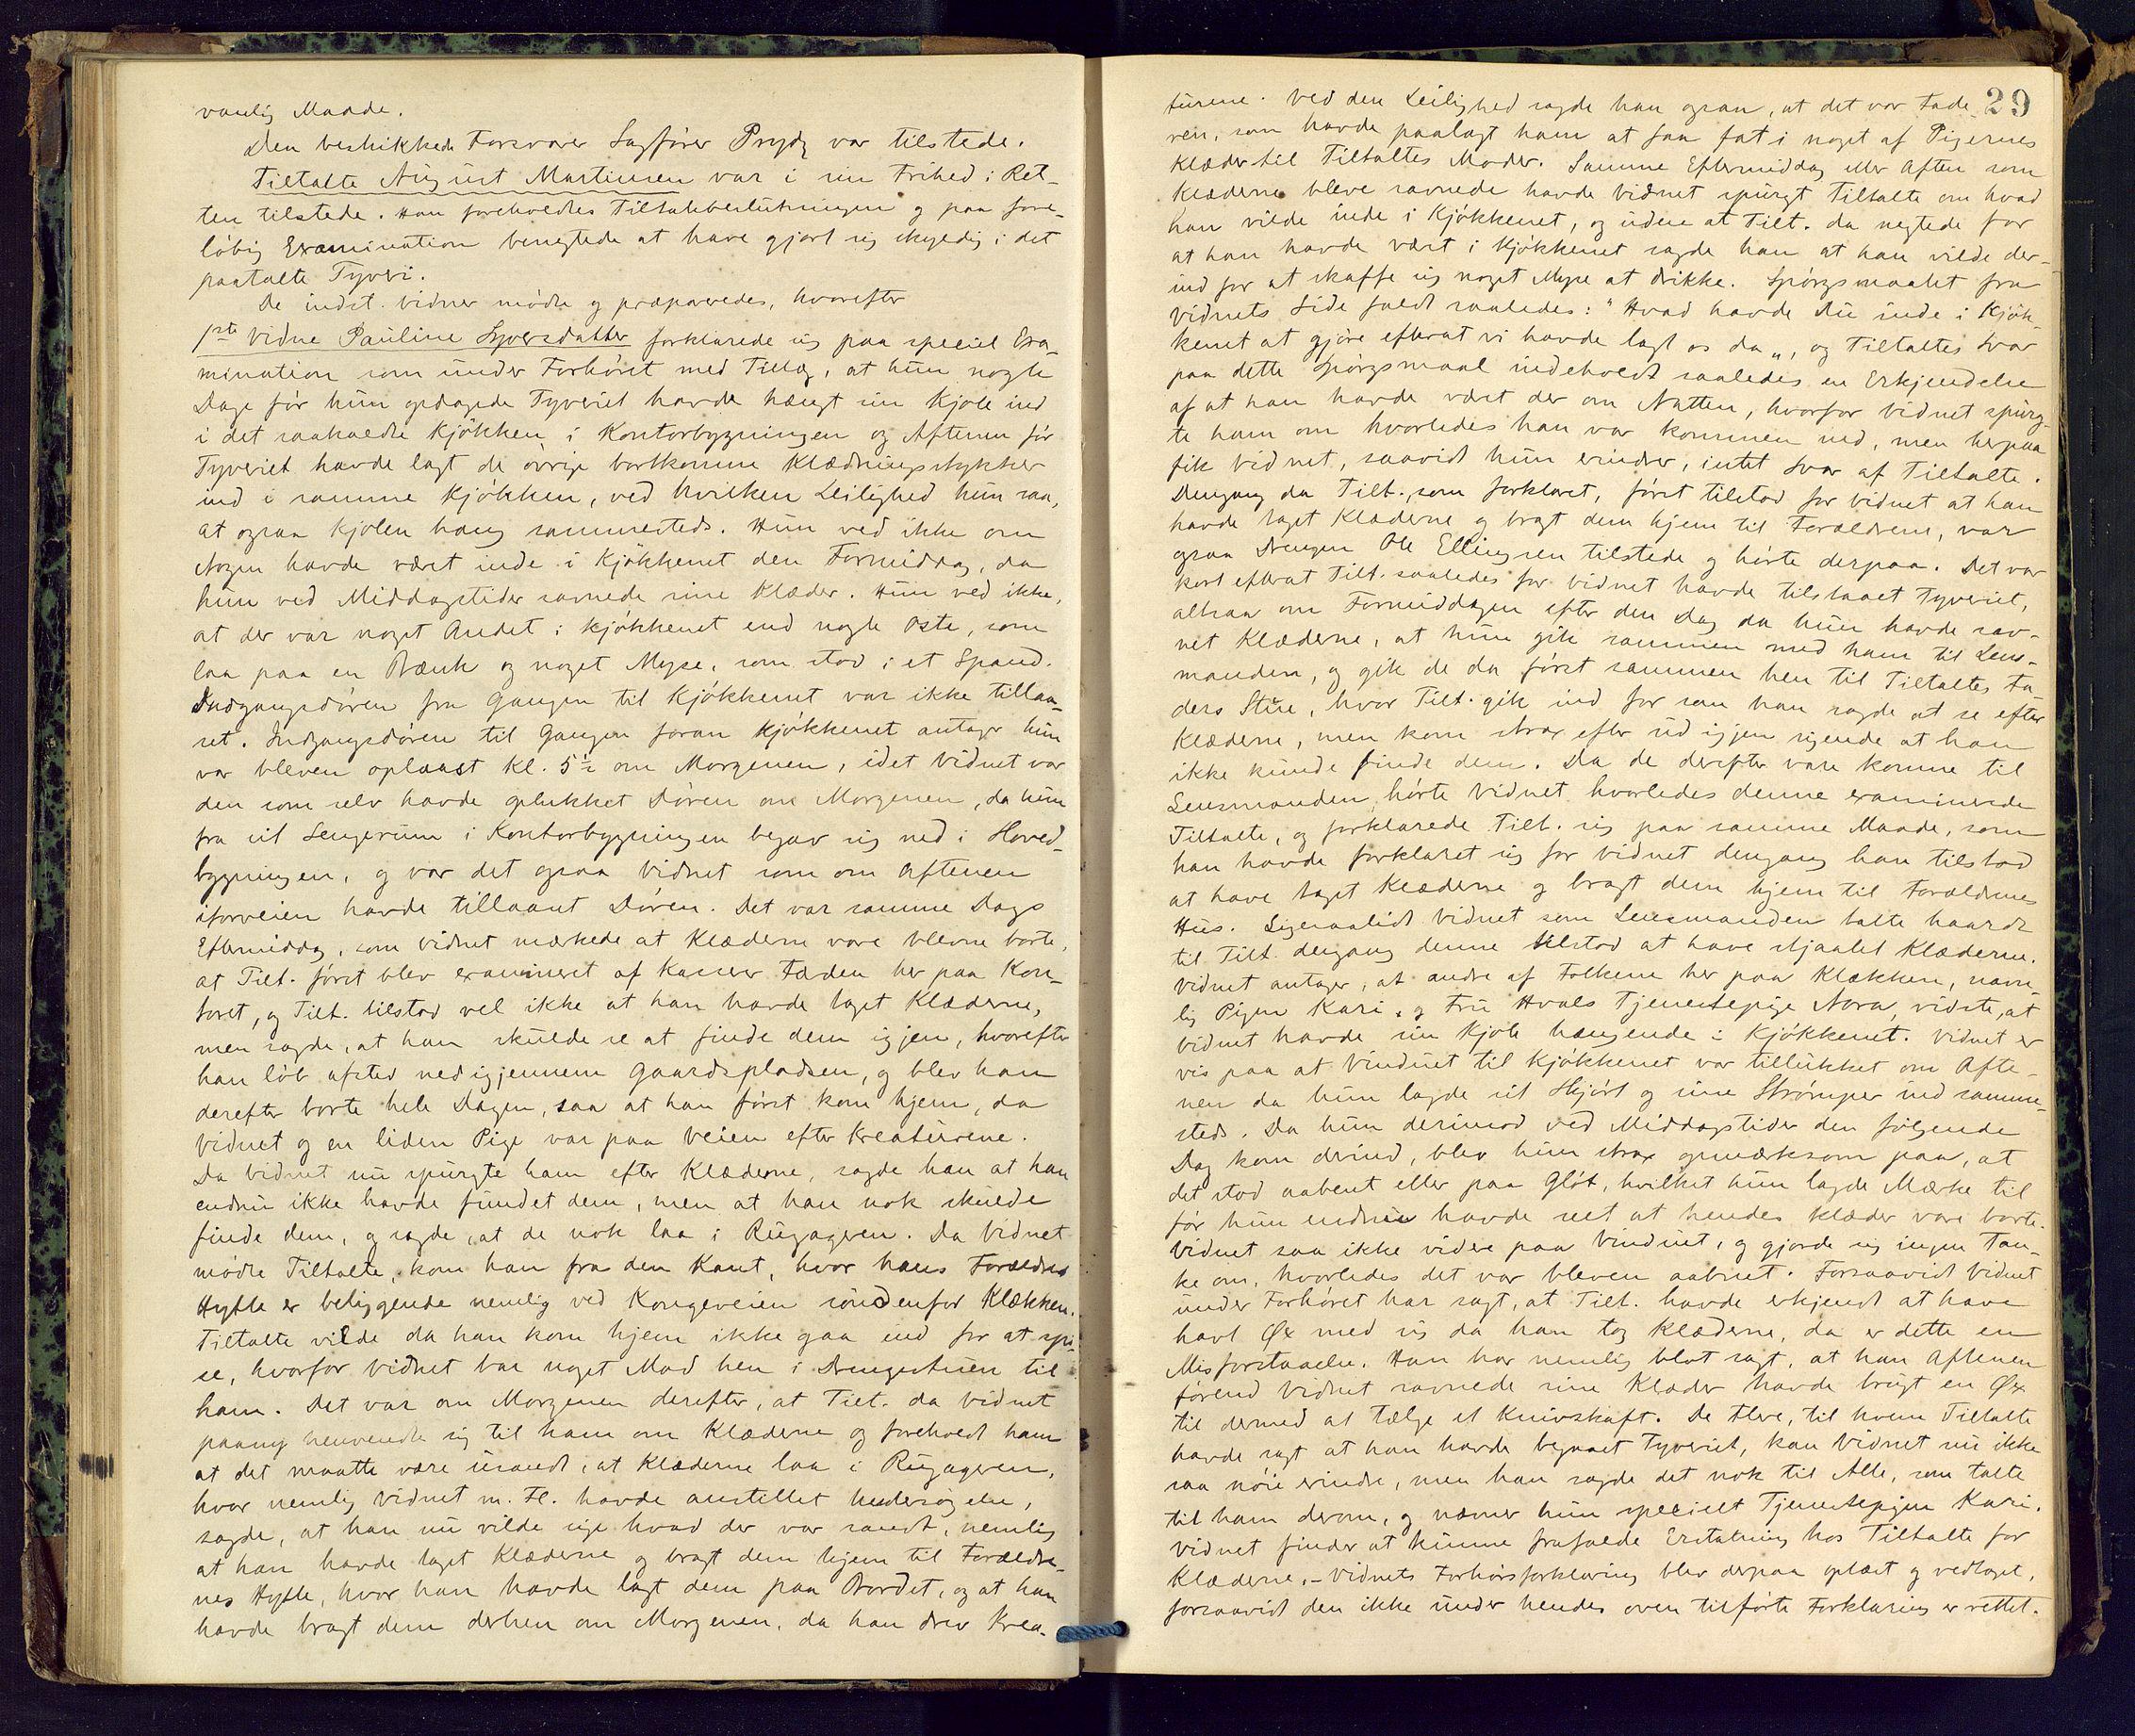 vanlig Maade.
Den beskikkede Forsvarer Sagfører Prydz var tilstede.
Tiltalte August Martinsen var i sin Frihed i Ret-
ten tilstede. Han foreholdtes Tiltalebeslutningen og paa fore-
løbig Examination benegtede at have gjort sig skyldig i det
paatalte Tyveri.
De indst. Vidner mødte og præpareredes, hvorefter
1ste Vidne Pauline Syversdatter forklarede sig paa speciel Exa-
mination som under Forhøret med Tillæg, at hun nogle
Dage før hun opdagede Tyveriet havde hængt sin Kjole ind
i det saakaldte Kjøkken i Kontorbygningen og Aftenen før
Tyveriet havde lagt de øvrige bortkomne Klædningsstykker
ind i samme Kjøkken, ved hvilken Leilighed hun saa,
at ogsaa Kjolen hang sammesteds. Hun ved ikke om
Nogen havde været inde i Kjøkkenet den Formiddag, da
hun ved Middagstider savnede sine Klæder. Hun ved ikke,
at der var noget Andet i Kjøkkenet end nogle Oste, som
laa paa en Bænk og noget Myse, som stod i et Spand.
Indgangsdøren fra Gangen til Kjøkkenet var ikke tillaa-
set. Indgangsdøren til Gangen foran Kjøkkenet antager hun
var bleven oplaast Kl. 5½ om Morgenen, idet Vidnet var
den som selv havde oplukket Døren om Morgenen, da hun
fra sit Sengerum i Kontorbygningen begav sig ned i Hoved-
bygningen, og var det ogsaa Vidnet som om Aftenen
iforveien havde tillaaset Døren. Det var samme Dags
Eftermiddag, som Vidnet mærkede at Klæderne vare blevne borte,
at Tilt. først blev examineret af Kasserer Faden her paa Kon-
toret, og Tilt. tilstod vel ikke at han havde taget Klæderne,
men sagde, at han skulde se at finde dem igjen, hvorefter
han løb afsted nedigjennem Gaardspladsen, og blev han
derefter borte hele Dagen, saa at han først kom hjem, da
Vidnet og en liden Pige var paa Veien efter Kreaturene.
Da Vidnet nu spurgte ham efter Klæderne, sagde han at han
endnu ikke havde fundet dem, men at han nok skulde
finde dem, og sagde, at de nok laa i Rugageren. Da Vidnet
mødte Tiltalte, kom han fra den Kant, hvor hans Forældres
Hytte er beliggende nemlig ved Kongeveien søndenfor Klækken.
Tiltalte vilde da han kom hjem ikke gaa ind for at spi-
se, hvorfor Vidnet bar noget Mad hen i Drengestuen til
ham. Det var om Morgenen derefter, at Tilt. da Vidnet
paany henvendte sig til ham om Klæderne og foreholdt ham
at det maatte være usandt, at Klæderne laa i Rugageren,
hvor nemlig Vidnet m. Fl. havde anstillet Undersøgelse,
sagde, at han nu vilde sige hvad der var sandt, nemlig
at han havde taget Klæderne og bragt dem hjem til Forældre-
nes Hytte, hvor han havde lagt dem paa Bordet, og at han
havde bragt dem derhen om Morgenen, da han drev Krea-
29
turene. Ved den Leilighed sagde han ogsaa, at det var Fade-
ren, som havde paalagt ham at faa fat i noget af Pigernes
Klæder til Tiltaltes Moder. Samme Eftermiddag eller Aften som
Klæderne bleve savnede havde Vidnet spurgt Tiltalte om hvad
han vilde inde i Kjøkkenet, og uden at Tilt. da negtede for
at han havde vært i Kjøkkenet sagde han at han vilde der-
ind for at skaffe sig noget Myse at drikke. Spørgsmaalet fra
Vidnets Side faldt saaledes: "Hvad havde Du inde i Kjøk-
kenet at gjøre efterat vi havde lagt os da", og Tiltaltes Svar
paa dette Spørgsmaal indeholdt saaledes en Erkjendelse
af at han havde vært der om Natten, hvorfor Vidnet spurg-
te ham om hvorledes han var kommen ind, men herpaa
fik Vidnet, saavidt hun erindrer, intet Svar af Tiltalte.
Dengang da Tilt., som forklaret, først tilstod for Vidnet at han
havde taget Klæderne og bragt dem hjem til Forældrene, var
ogsaa Drengen Ole Ellingsen tilstede og hørte derpaa. Det var
kort efterat Tilt. saaledes for Vidnet havde tilstaaet Tyveriet,
altsaa om Formiddagen efter den Dag da hun havde sav-
net Klæderne, at hun gik sammen med ham til Lens-
manden, og gik de da først sammen hen til Tiltaltes Fa-
ders Stue, hvor Tilt. gik ind for som han sagde at se efter
Klæderne, men kom strax efter ud igjen sigende at han
ikke kunde finde dem. Da de derefter vare komne til
Lensmanden, hørte Vidnet hvorledes denne examinerede
Tiltalte, og forklarede Tilt. sig paa samme Maade, som
han havde forklaret sig for Vidnet dengang han tilstod
at have taget Klæderne og bragt dem hjem til Forældrenes
Hus. Ligesaalidt Vidnet som Lensmanden talte haardt
til Tilt. dengang denne tilstod at have stjaalet Klæderne.
Vidnet antager, at andre af Folkene her paa Klækken, navn-
lig Pigen Kari, og Fru Hvals Tjenestepige Nora, vidste, at
Vidnet havde sin Kjole hængende i Kjøkkenet. Vidnet er
vis paa at Vinduet til Kjøkkenet var tillukket om Afte-
nen da hun lagde sit Skjørt og sine Strømper ind samme-
steds. Da hun derimod ved Middagstider den følgende
Dag kom derind, blev hun strax opmærksom paa, at
det stod aabent eller paa Gløt, hvilket hun lagde Mærke til
før hun endnu havde seet at hendes Klæder vare borte.
Vidnet saa ikke videre paa Vinduet, og gjorde sig ingen Tan-
ke om, hvorledes det var bleven aabnet. Forsaavidt Vidnet
under Forhøret har sagt, at Tilt. havde erkjendt at have
havt Øx med sig da han tog Klæderne, da er dette en
Misforstaaelse. Han har nemlig blot sagt, at han Aftenen
førend Vidnet savnede sine Klæder havde brugt en Øx
til dermed at tælge et Knivskaft. De Flere, til hvem Tiltalte
havde sagt at han havde begaaet Tyveriet, kan Vidnet nu ikke
saa nøie erindre, men han sagde det nok til Alle, som talte
til ham derom, og nævner hun specielt Tjenestepigen Kari.
Vidnet finder at kunne frafalde Erstatning hos Tiltalte for
Klæderne. - Vidnets Forhørsforklaring blev derpaa oplæst og vedtaget,
forsaavidt den ikke under hendes oven tilførte Forklaring er rettet.